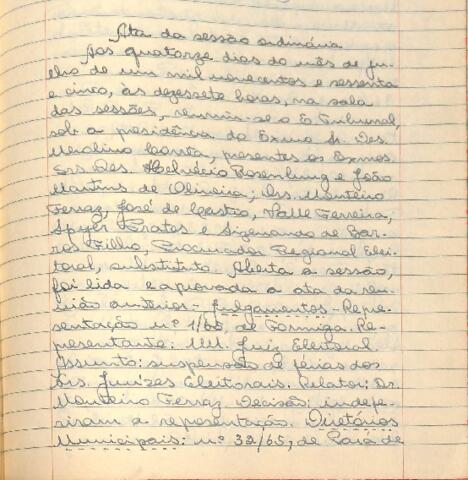 Ata da sessão ordinária
Aos quatorze dias do mês de ju-
lho de um mil novecentos e sessenta
e cinco, às dezessete horas, na sala
das sessões, reuniu-se o E. Tribunal,
sob a presidência do Exmo Sr. Des.
Merolino Corrêa, presentes os Exmos
Srs. Des. Helvécio Rosenburg e João
Martins de Oliveira; Drs. Monteiro
Ferraz, José de Castro, Valle Ferreira,
Spyer Prates e Sizenando de Bar-
ros Filho, Procurador Regional Elei-
toral, substituto. Aberta a sessão,
foi lida e aprovada a ata da reu-
nião anterior - Julgamentos - Repre-
sentação nº 1/65, de Formiga. Re-
presentante: MM. Juiz Eleitoral.
Assunto: suspensão de férias dos
Srs. Juizes Eleitorais. Relator: Dr.
Monteiro Ferraz Decisão: indefe-
riram a representação. Diretórios
Municipais: nº 32/65, de Pará de